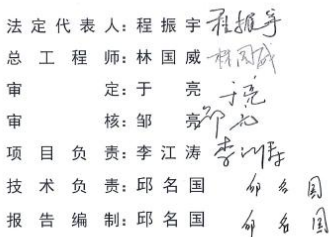 法定代表人：程振宇 程振宇
总工程师：林国威 林国威
审定：于亮 于亮
审核：邹亮
项目负责：李江涛 李江涛
技术负责：邱名国 邱名国
报告编制：邱名国 邱名国